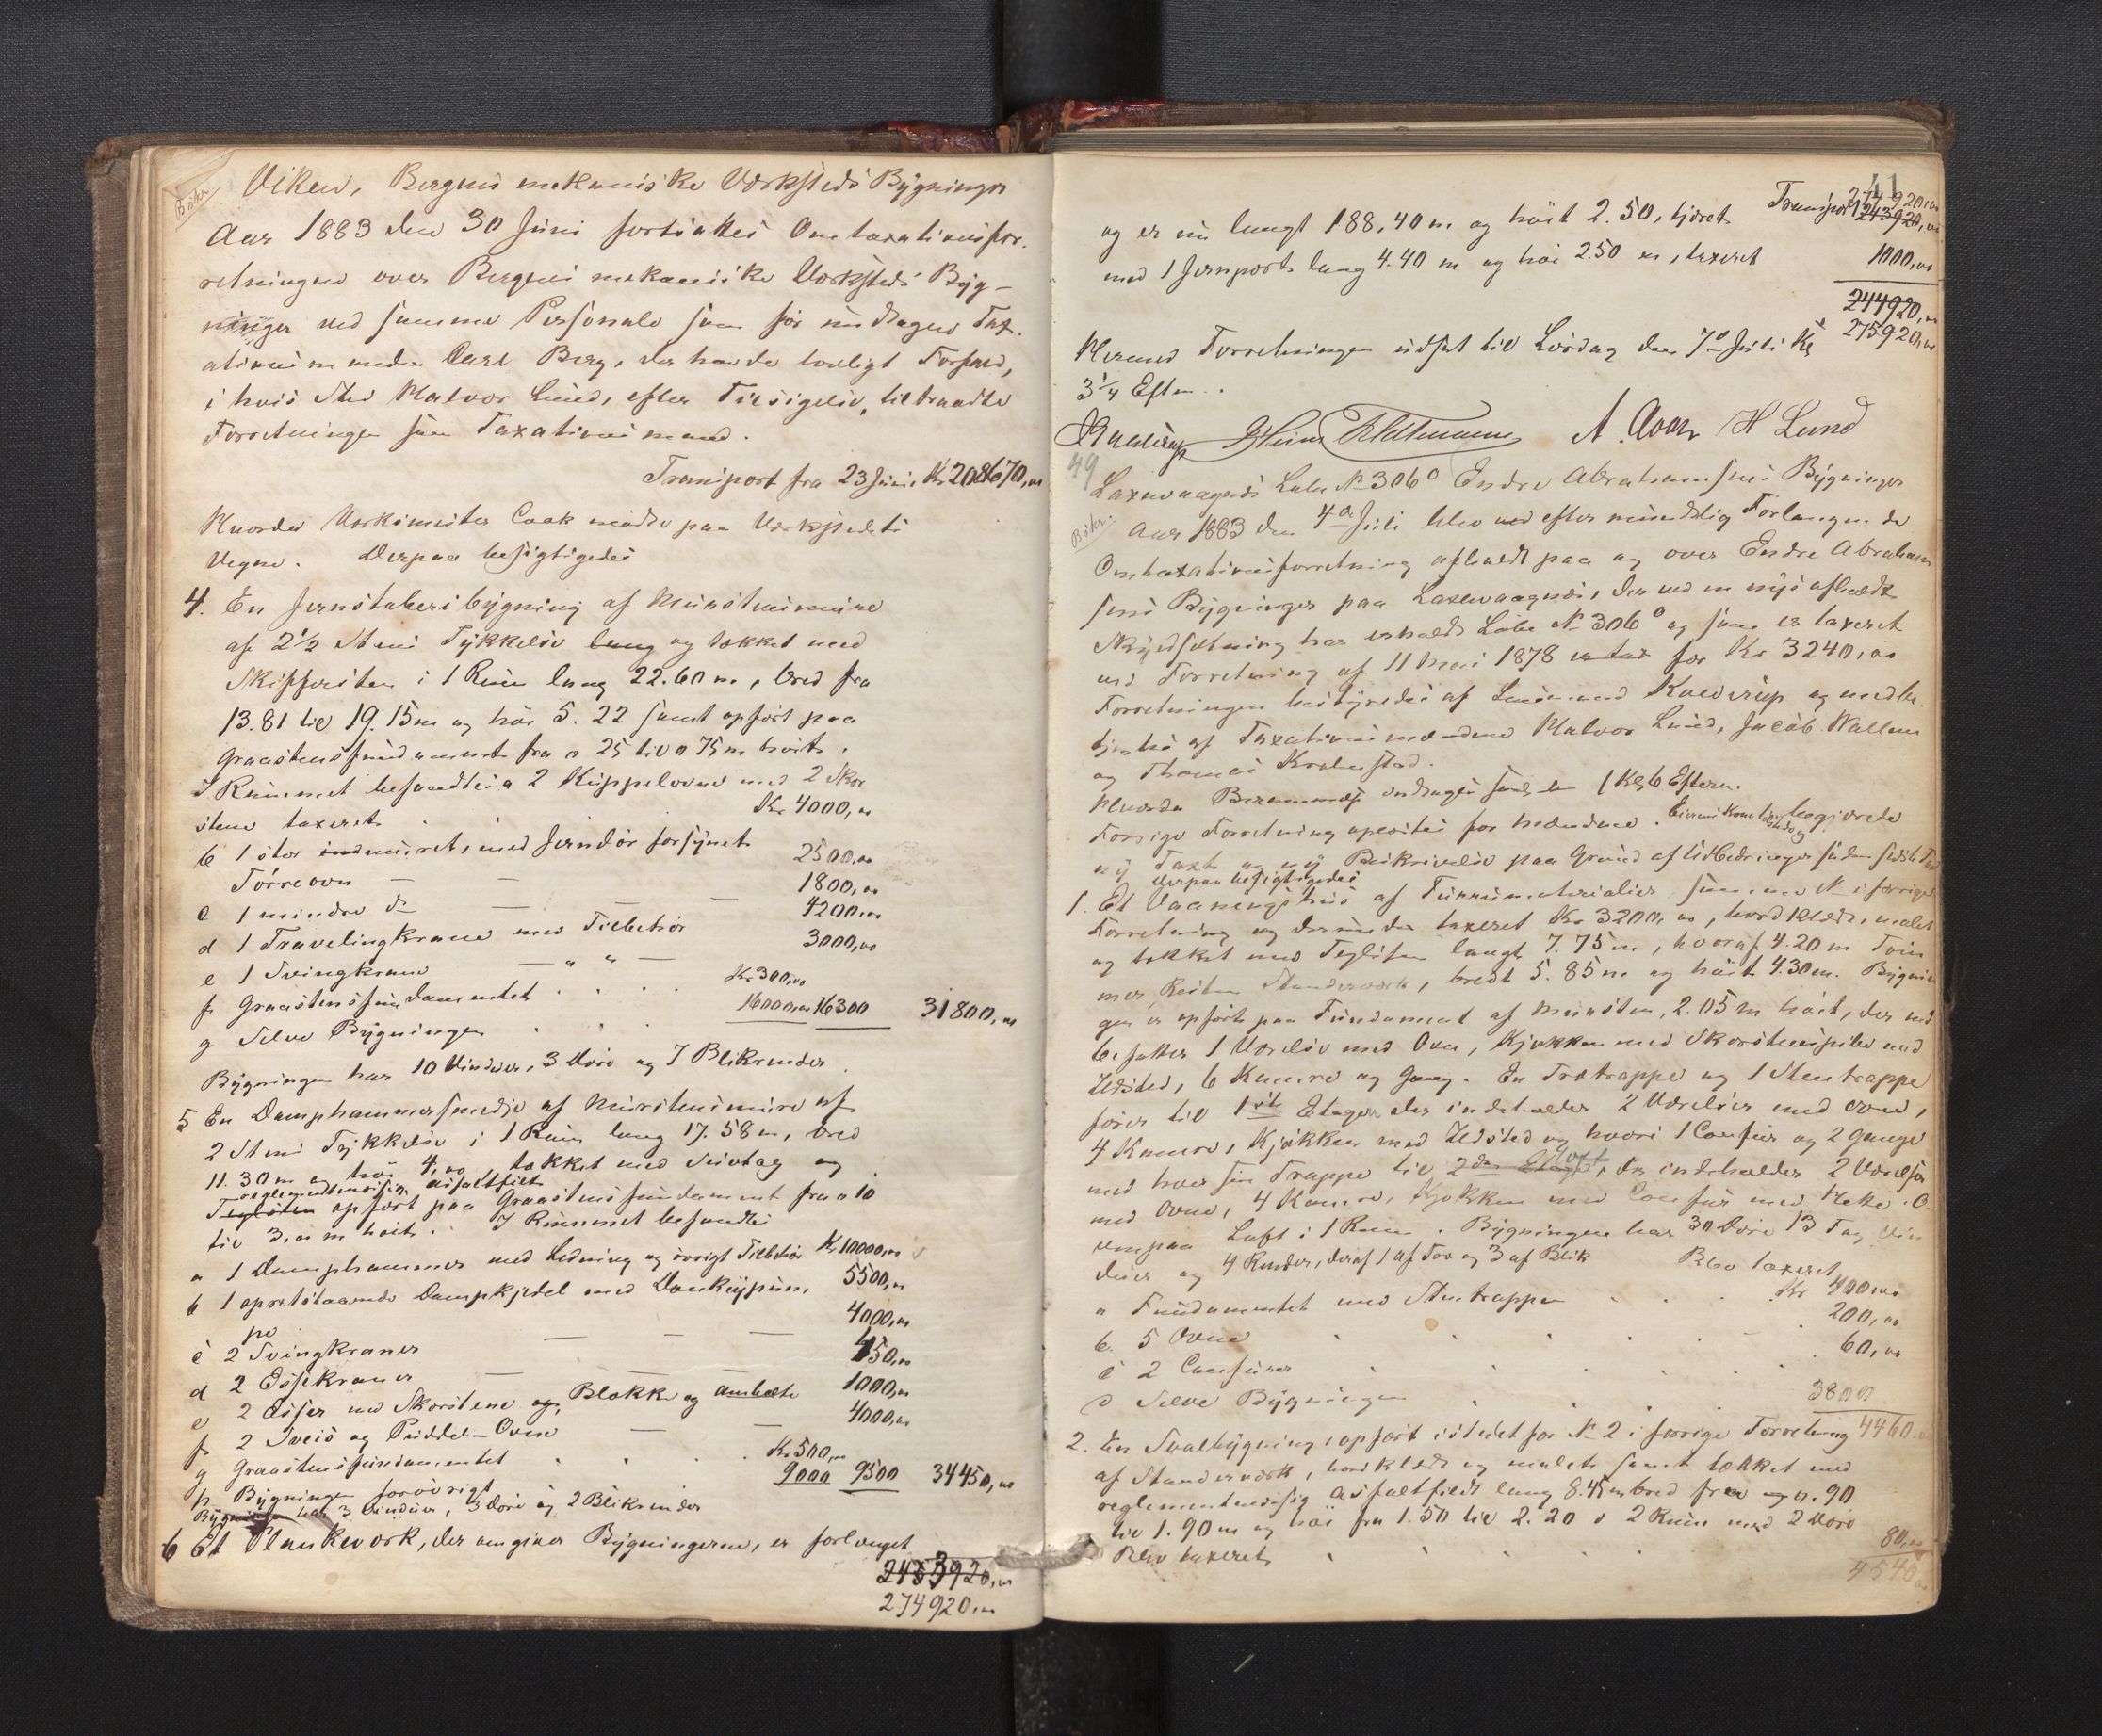 Viken, Bergens mekaniske Værksteds Bygninger
Aar 1883 den 30 Juni fortsattes Omtaxationsfor-
retningen over Bergens mekaniske Værksteds Byg-
ninger ved samme Personale som før undtagen Tax-
ationsmanden Carl Berg, der havde lovligt Forfald,
i hvis Sted Halvor Lund, efter Tilsigelse, tiltraadte
Forretningen som Taxationsmand.
Transport fra 23 Juni Kr 208670,00
Hvorda Værkmester Cook mødte paa Værkstedets
Vegne. Derpaa besigtigedes
4. En Jernstøberibygning af Murstensmure
af 2½ Stens Tykkelse lang og tækket med
Skiffersten i 1 Rum lang 22.60 m, bred fra
13.81 til 19.15 m og høi 5.22 samt opført paa
Graastensfundament fra 0 25 til 0 75 m høit.
I Rummet befandtes a 2 Kuppelovne med 2 Skor
stene taxeret Kr. 4000,00
b 1 stor indmuret, med Jerndør forsynet
Tørreovn 2500,00
c 1 mindre do 1800,00
d 1 Travelingkrane med Tilbehør 4200,00
e 1 Svingkrane 3000,00
f Graastensfundamentet Kr. 300,00
g Selve Bygningen 16000,00 16300 31800,00
Bygningen har 10 Vinduer, 3 Døre og 7 Blikrender.
5 En Damphammersmedje af Murstensmure af
2 Stens Tykkelse i 1 Rum lang 17.58 m, bred
11.30 m og høi 4,00 tækket med Suvtag og
reglementmæssig Asfaltfilt
Teglsten opført paa Graastensfundament fra 0 10
til 3,00 m høit. I Rummet befandtes
a 1 Damphammer med Ledning og øvrigt Tilbehør Kr 10000,00
b 1 opretstaaende Dampkjedel med Donkeypum, 5500,00
pe
c 2 Svingkraner 4000,00
d 2 Essekraner 450,00
e 2 Esser med Skorstene og Blokke og Ambolte 1000,00
f 2 Sveis og Puddel-Ovne 4000,00
g Graastensfundamentet Kr. 500,00
h Bygningen forøvrigt 9000 9500 34450,00
Bygningen har 3 Vinduer, 3 Døre og 2 Blikrender
6 Et Plankeværk, der omgiver Bygningerne, er forlænget
243920,00
274920,00
41
Transport 243920,00
274920,00
og er nu langt 188,40 m og høit 2.50, tjæret
med 1 Jernport lang 4.40 m og høi 2.50 m, taxeret 1000,00
244920,00
275920,00
Hermed Forretningen udsat til Lørdag den 7de Juli Kl
3¼ Efterm.
H Lund
49
Laxevaagnes Løbe No 306o Endre Abrahamsens Bygninger
Aar 1883 den 4de Juli blev ved efter mundtlig Forlangende
Omtaxationsforretning afholdt paa og over Endre Abraham
sens Bygninger paa Laxevaagnes, der ved en nys afholdt
Skyldsætning har erholdt Løbe No 306o og som er taxeret
ved Forretning af 11 Mai 1878 er tax for Kr 3240,00
Forretningen bestyredes af Lensmand Knudsen og medbe-
tjentes af Taxationsmændene Halvor Lund, Jacob Wallem
og Thomas Krohnstad.
Forrige Forretning oplæstes for Mændene. Eieren Kone tilstede og begjærede
ny Taxt og ny Beskrivelse paa Grund af Udbedringer siden sidste Taxt
Derpaa besigtigedes
1. Et Vaaningshus af Tømmermaterialier, samme No i forrige
Forretning og derunder taxeret Kr 3200,00, bordklædt, malet
og tækket med Teglsten langt 7.75 m, hvoraf 4.20 m Tøm
mer, Resten Standerværk, bredt 5.85 m og høit 4.30 m. Bygnin
gen er opført paa Fundament af Mursten, 2.05 m høit, der ind
befatter 1 Værelse med Ovn, Kjøkken med Skorstenspibe med
Ildsted, 6 Kamre og Gang. En Trætrappe og 1 Stentrappe
fører til 1ste Etage, der indeholder 2 Værelser med Ovne,
4 Kamre, Kjøkken med Ildsted og hvori 1 Comfur og 2 Gange
med hver sin Trappe til 2den Etage Loft, der indeholder 2 Værelser
med Ovne, 4 Kamre, Kjøkken med Comfur med Hætte. O-
venpaa Loft i 1 Rum. Bygningen har 30 Døre 13 Fag Vin
duer og 4 Render, deraf 1 af Træ og 3 af Blik Blev taxeret
a Fundamentet med Stentrappen Kr 400,00
b. 5 Ovne 200,00
c 2 Comfurer 60,00
d Selve Bygningen 3800
4460
2. En Svalbygning, opført istedetfor No 2 i forrige Forretning
af Standerværk, bordklædt og malet samt tækket med
reglementmæssig Asfaltfilt lang 8.45 m bred fra 0.90
til 1.90 m og høi fra 1.50 til 2.20 i 2 Rum med 2 Døre
Blev taxeret 80,00
4540,00